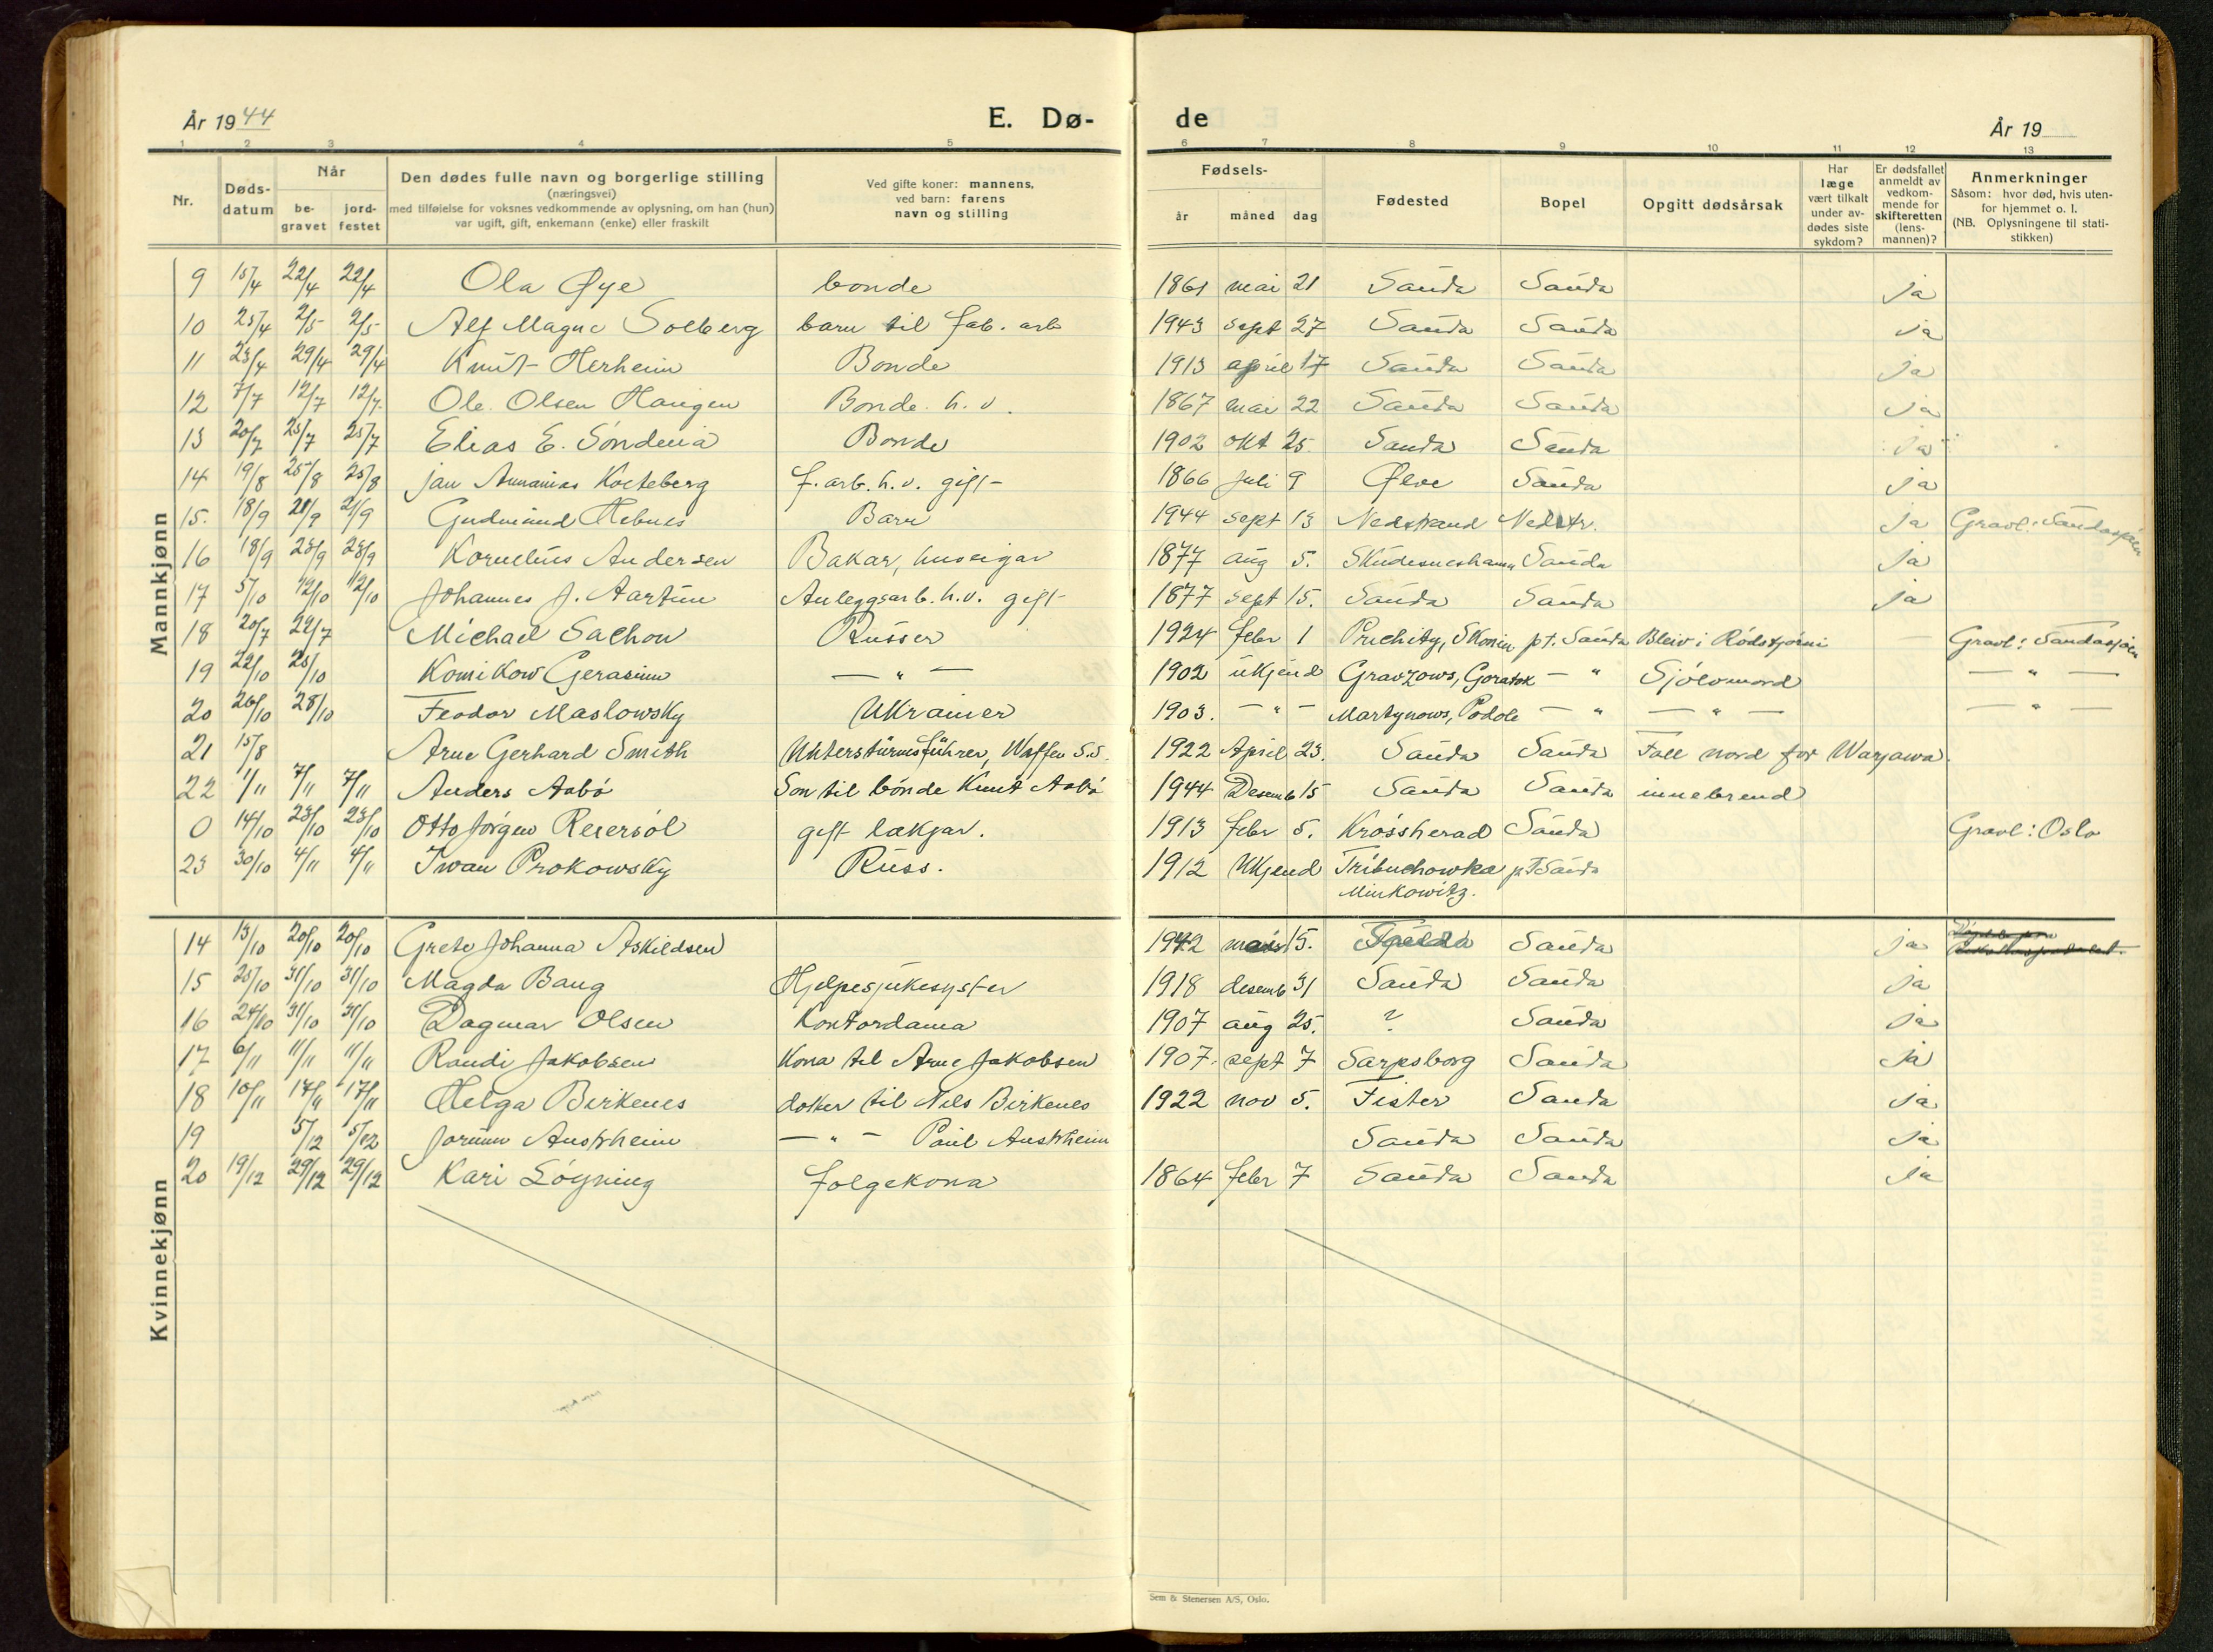 År 1944 E. Dø- de År 19
1 2 3 4 5 6 7 8 9 10 11 12 13
Nr.
Døds-
datum
Når
be-
gravet
jord-
festet
Den dødes fulle navn og borgerlige stilling
(næringsvei)
med tilføielse for voksnes vedkommende av oplysning, om han (hun)
var ugift, gift, enkemann (enke) eller fraskilt
Ved gifte koner: mannens,
ved barn: farens
navn og stilling
Fødsels-
år måned dag
Fødested
Bopel
Opgitt dødsårsak
Har
læge
vært tilkalt
under av-
dødes siste
sykdom?
Er dødsfallet
anmeldt av
vedkom-
mende for
skifteretten
(lens-
mannen)?
Anmerkninger
Såsom: hvor død, hvis uten-
for hjemmet o. l.
(NB. Oplysningene til stati-
stikken)
Mannkjønn
9 15/4 22/4 22/4 Ola Øye bonde 1861 mai 21 Sauda Sauda ja
10 25/4 2/5 2/5 Alf Magne Solberg barn til fab. arb 1943 sept 27 Sauda Sauda ja
11 23/4 29/4 29/4 Knut Herheim Bonde 1913 april 17 Sauda Sauda ja
12 7/7 12/7 12/7 Ole Olsen Haugen Bonde h. v. 1867 mai 22 Sauda Sauda ja
13 20/7 25/7 25/7 Elias E. Söndenå Bonde 1902 okt 25 Sauda Sauda ja
14 19/8 25/8 25/8 jan Annanias Kocteberg f. arb. h. v. gift 1866 juli 9 Ølve Sauda ja
15. 18/9 21/9 21/9 Gudmund Hebnes Barn 1944 sept 13 Nedstrand Nedstr. ja Gravl: Saudasjöen
16 18/9 23/9 23/9 Kornelius Andersen Bakar, huseigar 1877 aug 5. Skudesneshamn Sauda ja
17 5/10 12/10 12/10 Johannes J. Aartun Anleggsarb. h.v. gift 1877 sept 15. Sauda Sauda ja
18 20/7 22/7 Michael Sachow Russer 1924 febr 1 Pruchity, Skonin p.t. Sauda Bleiv i Rödstjörni Gravl: Saudasjöen
19 22/10 25/10 Komikow Gerasimn — " — 1902 ukjend Gravzows, Goratok — " Sjölvmord — " —
20 26/10 28/10 Feodor Maslowsky Ukrainer 1903. — " — Martynows, Podole — " — " — — " —
21 15/8 Arne Gerhard Smith Untersturmsführer, Waffen S.S. 1922 April 23. Sauda Sauda Fall nord for Warjawa.
22 1/11 7/11 7/11 Anders Aabö Son til bonde Knut Aabö 1944 Desemb 15 Sauda Sauda innebrend
0 14/10 23/10 23/10 Otto Jörgen Reiersöl gift lækjar. 1913 febr 5. Krössherad Sauda Gravl: Oslo
23 30/10 4/11 4/11 Iwan Prokowsky Russ. 1912 Ukjend Tribuchowka p.t Sauda
Minkowitz.
Kvinnekjønn
14 13/10 20/10 20/10 Grete Johanna Askildsen 1942 mars 15. Sauda ja
15 25/10 31/10 31/10 Magda Baug Hjelpesjukesyster 1918 desemb 31 Sauda Sauda ja
16 24/10 31/10 31/10 Dagmar Olsen Kontordama 1907 aug 25. ? Sauda ja
17 6/11 11/11 11/11 Randi Jakobsen Kona til Arne Jakobsen 1907. sept 7 Sarpsborg Sauda ja
18 10/11 17/11 17/11 Helga Birkenes dotter til Nils Birkenes 1922 nov 5. Fister Sauda ja
19 5/12 5/12 Jorunn Austrheim — " — Paul Austrheim Sauda Sauda ja
20 19/12 29/12 29/12 Kari Löyning folgekona 1864 febr 7 Sauda Sauda ja
Sem & Stenersen A/S, Oslo.